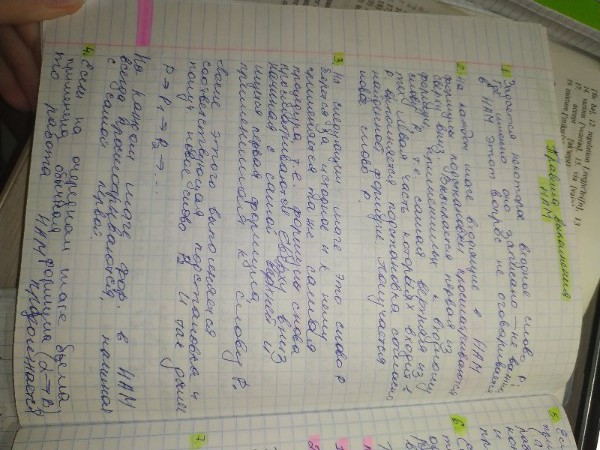 [fə bə], 12. regulation [ˌregjʊˈleɪʃn], 13
14. various [ˈveərɪəs], 15. via [ˈvaɪə]
17. accept [əkˈsept]
Правила выполнения
НАМ
1. Задается некоторое входное слово P.
Где именно оно записано — не важно
в НАМ этот вопрос не оговаривается
2. На каждом шаге входящие в НАМ
формулы подстановки просматриваются
сверху вниз. Выбирается первая из
формул, применимых к входному
слову P, т.е. самая верхняя из
тех, левая часть которых входит в
P. выполняется подстановка согласно
найденной формуле. Получается
новое слово P.
3. На следующем шаге это слово P
берется за исходное и к нему
применяется та же самая
процедура, т.е. формулы снова
просматриваются сверху вниз
начиная с самой верхней и
ищется первая формула,
применимая к слову P1
После этого выполняется
соответствующая подстановка и
получ новое слово P2 и так далее
P → P1 → P2 → ...
На каждом шаге фор. в НАМ
всегда просматриваются, начиная
с самой первой.
4. Если на очередном шаге была
применена обычная формула (α→β)
то работа НАМ продолжается
5
6
7.